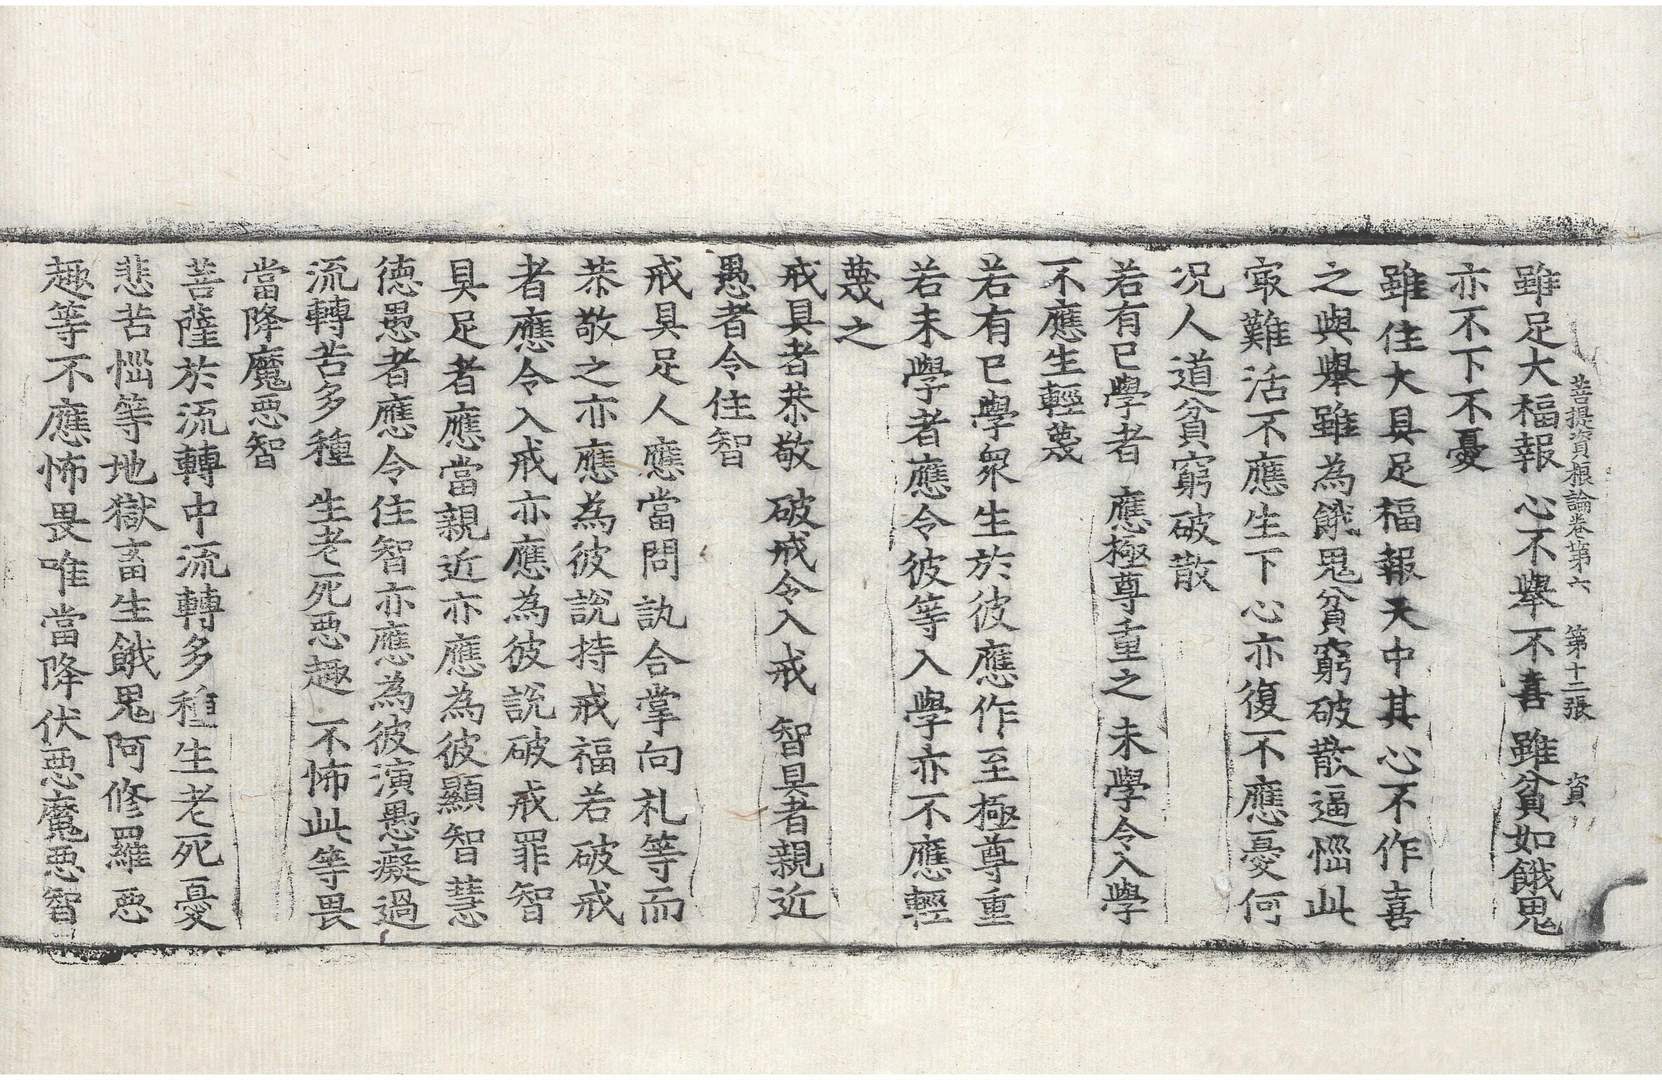 菩提資粮論卷第六　第十二張　資
雖足大福報　心不舉不喜　雖貧如餓鬼
亦不下不憂
雖住大具足福報天中其心不作喜
之與舉雖為餓鬼貧窮破散逼惱此
㝡難活不應生下心亦復不應憂何
况人道貧窮破散
若有已學者　應極尊重之　未學令入學
不應生輕蔑
若有已學衆生於彼應作至極尊重
若未學者應令彼等入學亦不應輕
蔑之
戒具者恭敬　破戒令入戒　智具者親近
愚者令住智
戒具足人應當問訊合掌向礼等而
恭敬之亦應為彼說持戒福若破戒
者應令入戒亦應為彼說破戒罪智
具足者應當親近亦應為彼顯智慧
德愚者應令住智亦應為彼演愚癡過
流轉苦多種　生老死惡趣　不怖此等畏
當降魔惡智
菩薩於流轉中流轉多種生老死憂
悲苦惱等地獄畜生餓鬼阿修羅惡
趣等不應怖畏唯當降伏惡魔惡智